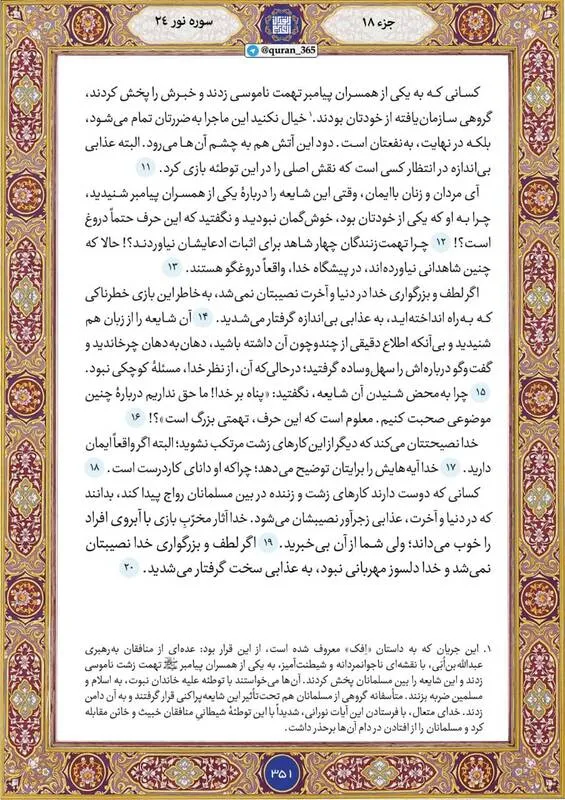 سوره نور ۲۴
جزء ۱۸
@quran_365
کسانی که به یکی از همسران پیامبر تهمت ناموسی زدند و خبرش را پخش کردند،
گروهی سازمان‌یافته از خودتان بودند.۱ خیال نکنید این ماجرا به ضررتان تمام می‌شود،
بلکه در نهایت، به‌نفعتان است. دود این آتش هم به چشم آن‌ها می‌رود. البته عذابی
بی‌اندازه در انتظار کسی است که نقش اصلی را در این توطئه بازی کرد. ۱۱
آی مردان و زنان باایمان، وقتی این شایعه را دربارهٔ یکی از همسران پیامبر شنیدید،
چرا به او که یکی از خودتان بود، خوش‌گمان نبودید و نگفتید که این حرف حتماً دروغ
است؟! ۱۲ چرا تهمت‌زنندگان چهار شاهد برای اثبات ادعایشان نیاوردند؟! حالا که
چنین شاهدانی نیاورده‌اند، در پیشگاه خدا، واقعاً دروغگو هستند. ۱۳
اگر لطف و بزرگواری خدا در دنیا و آخرت نصیبتان نمی‌شد، به‌خاطر این بازی خطرناکی
که به‌راه انداخته‌اید، به عذابی بی‌اندازه گرفتار می‌شدید. ۱۴ آن شایعه را از زبان هم
شنیدید و بی‌آنکه اطلاع دقیقی از چندوچون آن داشته باشید، دهان‌به‌دهان چرخاندید و
گفت‌وگو درباره‌اش را سهل‌وساده گرفتید؛ درحالی‌که آن، از نظر خدا، مسئلهٔ کوچکی نبود.
۱۵ چرا به‌محض شنیدن آن شایعه، نگفتید: «پناه بر خدا! ما حق نداریم دربارهٔ چنین
موضوعی صحبت کنیم. معلوم است که این حرف، تهمتی بزرگ است»؟! ۱۶
خدا نصیحتتان می‌کند که دیگر از این کارهای زشت مرتکب نشوید؛ البته اگر واقعاً ایمان
دارید. ۱۷ خدا آیه‌هایش را برایتان توضیح می‌دهد؛ چراکه او دانای کاردرست است. ۱۸
کسانی که دوست دارند کارهای زشت و زننده در بین مسلمانان رواج پیدا کند، بدانند
که در دنیا و آخرت، عذابی زجرآور نصیبشان می‌شود. خدا آثار مخرّبِ بازی با آبروی افراد
را خوب می‌داند؛ ولی شما از آن بی‌خبرید. ۱۹ اگر لطف و بزرگواری خدا نصیبتان
نمی‌شد و خدا دلسوز مهربانی نبود، به عذابی سخت گرفتار می‌شدید. ۲۰
۱. این جریان که به داستان «اِفک» معروف شده است، از این قرار بود: عده‌ای از منافقان به‌رهبری
عبدالله‌بن‌اُبَی، با نقشه‌ای ناجوانمردانه و شیطنت‌آمیز، به یکی از همسران پیامبر ﷺ تهمت زشت ناموسی
زدند و این شایعه را بین مسلمانان پخش کردند. آن‌ها می‌خواستند با توطئه علیه خاندان نبوت، به اسلام و
مسلمین ضربه بزنند. متأسفانه گروهی از مسلمانان هم تحت‌تأثیر این شایعه‌پراکنی قرار گرفتند و به آن دامن
زدند. خدای متعال، با فرستادن این آیات نورانی، شدیداً با این توطئهٔ شیطانیِ منافقان خبیث و خائن مقابله
کرد و مسلمانان را از افتادن در دام آن‌ها برحذر داشت.
۳۵۱